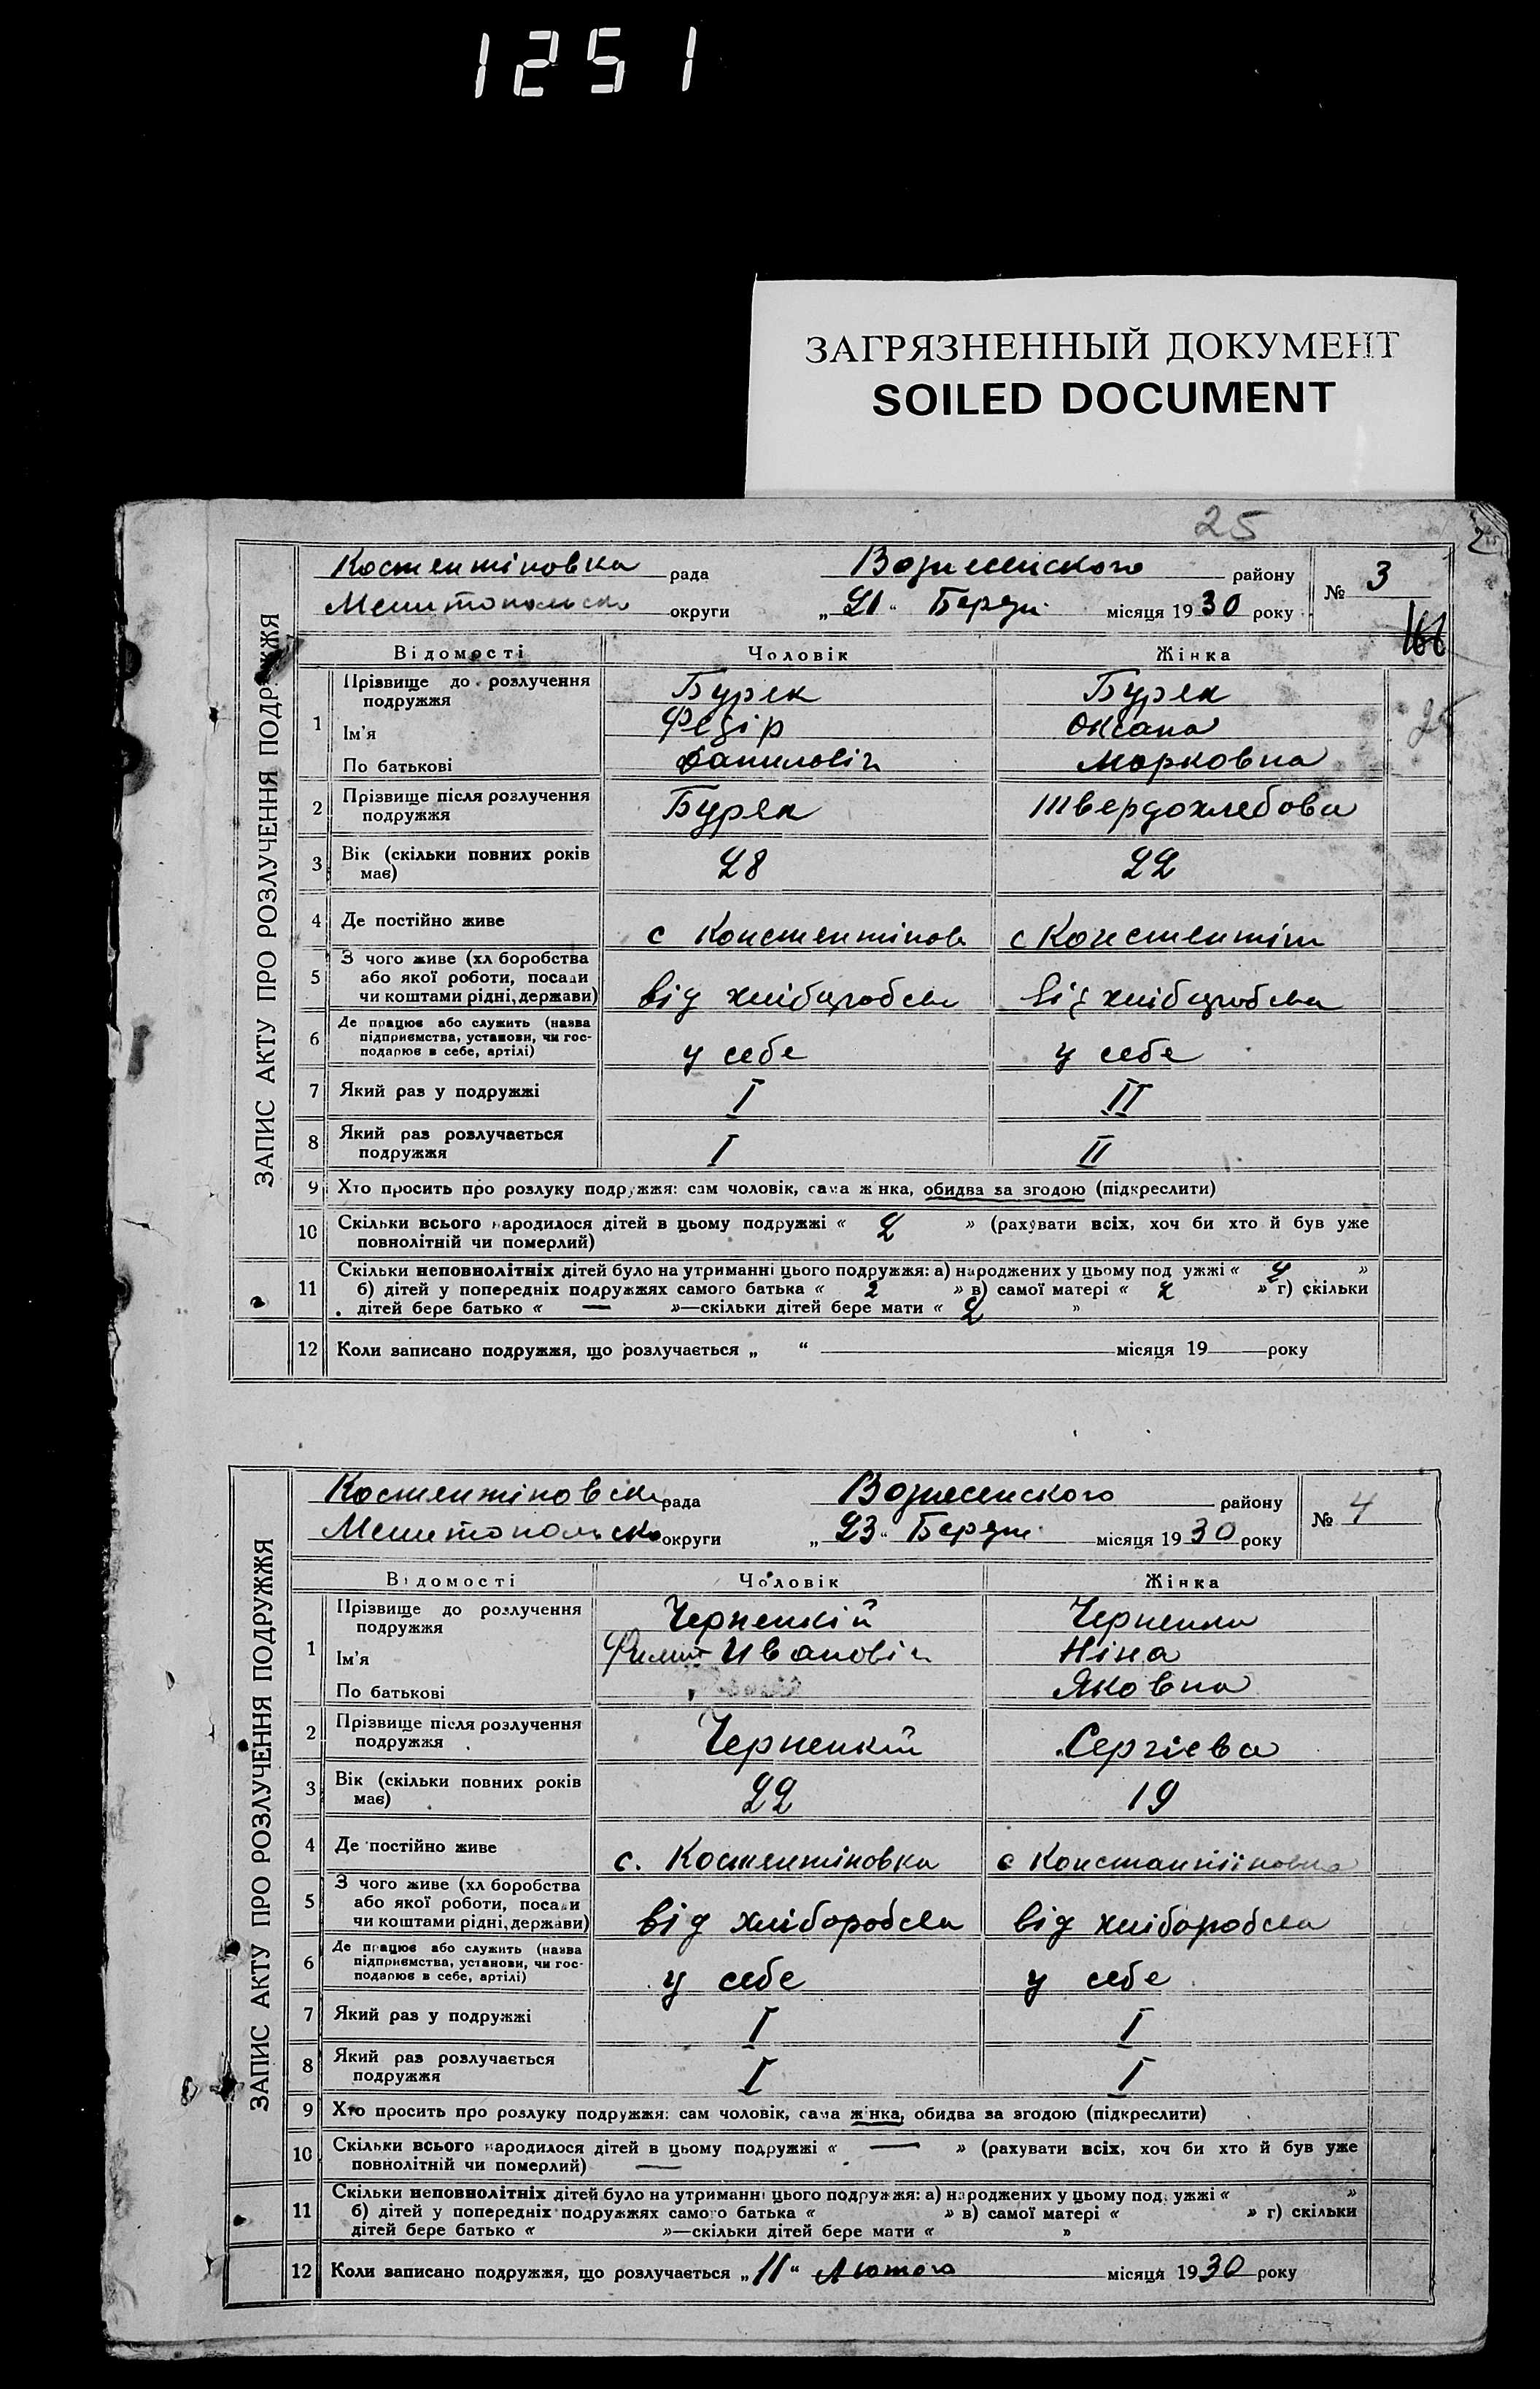 1251
ЗАГРЯЗНЕННЫЙ ДОКУМЕНТ
SOILED DOCUMENT
25
ЗАПИС АКТУ ПРО РОЗЛУЧЕННЯ ПОДРУЖЖЯ
Костентіновка рада Вознесенского району № 3
округи „21“ місяця 1930 року
166
Відомості Чоловік Жінка
1 Прізвище до розлучення подружжя Буряк Буряк
Ім'я Федір Оксана
По батькові Даниловіч Марковна
2 Прізвище після розлучення
подружжя Буряк Твердохлебова
3 Вік (скільки повних років
має) 28 22
4 Де постійно живе с Констентінов с Констентін
5 З чого живе (хлiборобства
або якої роботи, посади
чи коштами рідні, держави) від хліборобства від хліборобства
6 Де працює або служить (назва
підприємства, установи, чи гос-
подарює в себе, артілі) у себе у себе
7 Який раз у подружжі I II
8 Який раз розлучається
подружжя I II
9 Хто просить про розлуку подружжя: сам чоловік, сама жінка, обидва за згодою (підкреслити)
10 Скільки всього народилося дітей в цьому подружжі « 2 » (рахувати всіх, хоч би хто й був уже
повнолітній чи померлий)
11 Скільки неповнолітніх дітей було на утриманні цього подружжя: а) народжених у цьому подружжі « »
б) дітей у попередніх подружжях самого батька « 2 » в) самої матері « » г) скільки
дітей бере батько « — »—скільки дітей бере мати « 2 »
12 Коли записано подружжя, що розлучається „ “ місяця 19 року
ЗАПИС АКТУ ПРО РОЗЛУЧЕННЯ ПОДРУЖЖЯ
Костентіновск рада Вознесенского району № 4
округи „23“ місяця 1930 року
Відомості Чоловік Жінка
1 Прізвище до розлучення
подружжя Чернецкій
Ім'я Ивановіч Ніна
По батькові Яковна
2 Прізвище після розлучення
подружжя Чернецкій Сергієва
3 Вік (скільки повних років
має) 22 19
4 Де постійно живе с. Костентіновка с
5 З чого живе (хлiборобства
або якої роботи, посади
чи коштами рідні, держави) від хліборобства від хліборобства
6 Де працює або служить (назва
підприємства, установи, чи гос-
подарює в себе, артілі) у себе у себе
7 Який раз у подружжі I I
8 Який раз розлучається
подружжя I I
9 Хто просить про розлуку подружжя: сам чоловік, сама жінка, обидва за згодою (підкреслити)
10 Скільки всього народилося дітей в цьому подружжі « — » (рахувати всіх, хоч би хто й був уже
повнолітній чи померлий) —
11 Скільки неповнолітніх дітей було на утриманні цього подружжя: а) народжених у цьому подружжі « »
б) дітей у попередніх подружжях самого батька « » в) самої матері « » г) скільки
дітей бере батько « »—скільки дітей бере мати « »
12 Коли записано подружжя, що розлучається „11“ Лютого місяця 1930 року